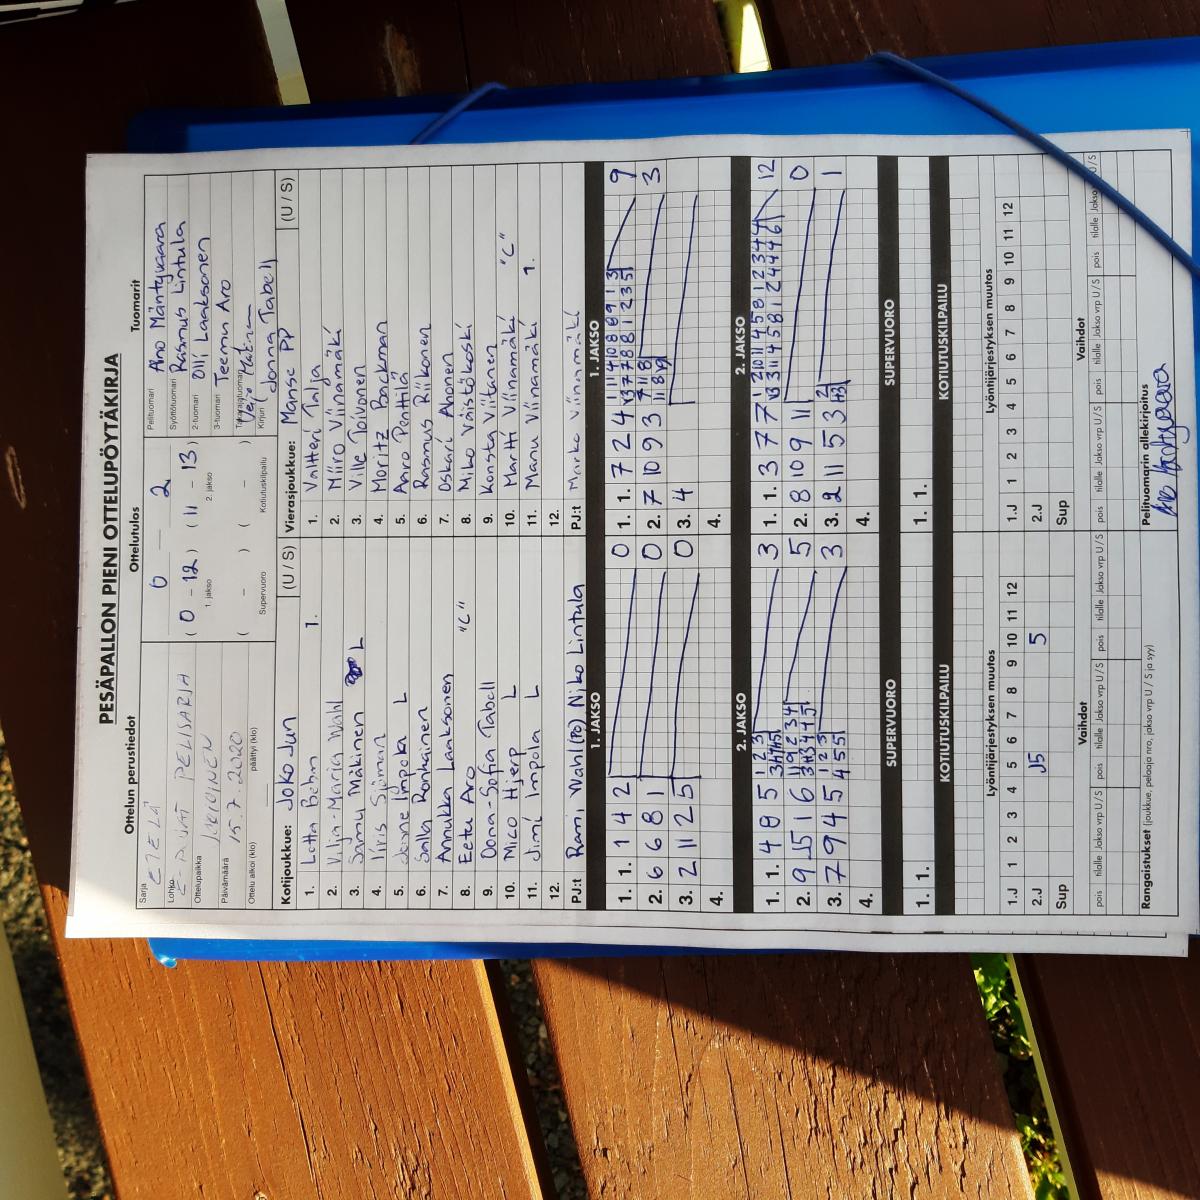 PESÄPALLON PIENI OTTELUPÖYTÄKIRJA
Ottelun perustiedot
Sarja
ETELÄ
Lohko
E-PÄIVÄT PELISARJA
Ottelupaikka
JOKIOINEN
Päivämäärä
15.7.2020
Ottelu alkoi (klo) päättyi (klo)
Ottelutulos
0 – 2
( 0 – 12 ) ( 11 – 13 )
1. jakso 2. jakso
( – ) ( – )
Supervuoro Kotiutuskilpailu
Tuomarit
Pelituomari Arno Mäntyvaara
Syöttötuomari Rasmus Lintula
2-tuomari Olli Laaksonen
3-tuomari Teemu Aro
Takarajatuomari
Kirjuri Jonna Tabell
Kotijoukkue: Joko Jun (U / S)
1. Lotta Behm 1.
2. Vilja-Maria Wahl
3. Samu Mäkinen L
4. Iiris Sjöman
5. Jenne Impola L
6. Salla Ronkainen
7. Annukka Laaksonen
8. Eetu Aro "C"
9. Oona-Sofia Tabell
10. Mico Hjerp L
11. Jimi Impola L
12.
PJ:t Rami Wahl (PJ) Niko Lintula
Vierasjoukkue: Manse PP (U / S)
1. Valtteri Talja
2. Miiro Viinamäki
3. Ville Toivonen
4. Moritz Backman
5. Aaro Penttilä
6. Rasmus Riikonen
7. Oskari Ahonen
8. Miko Väistökoski
9. Konsta Viitanen
10. Martti Viinamäki "C"
11. Manu Viinamäki 1.
12.
PJ:t Marko Viinamäki
1. JAKSO
1. 1. 1 4 2 0
2. 6 6 8 1 0
3. 2 11 2 5 0
4.
1. JAKSO
1. 1. 7 2 4 9
2. 7 10 9 3 3
3. 4
4.
2. JAKSO
1. 1. 4 8 5 3
2. 9 J5 1 6 5
3. 7 9 4 5 3
4.
2. JAKSO
1. 1. 3 7 7 12
2. 8 10 9 11 0
3. 2 11 5 3 1
4.
SUPERVUORO
1. 1.
SUPERVUORO
1. 1.
KOTIUTUSKILPAILU
KOTIUTUSKILPAILU
Lyöntijärjestyksen muutos
1.J 1 2 3 4 5 6 7 8 9 10 11 12
2.J J5 5
Sup
Lyöntijärjestyksen muutos
1.J 1 2 3 4 5 6 7 8 9 10 11 12
2.J
Sup
Vaihdot
pois tilalle Jakso vrp U / S pois tilalle Jakso vrp U / S pois tilalle Jakso vrp U / S
Vaihdot
pois tilalle Jakso vrp U / S pois tilalle Jakso vrp U / S pois tilalle Jakso U / S
Rangaistukset (joukkue, pelaaja nro, jakso vrp, U / S ja syy)
Pelituomarin allekirjoitus